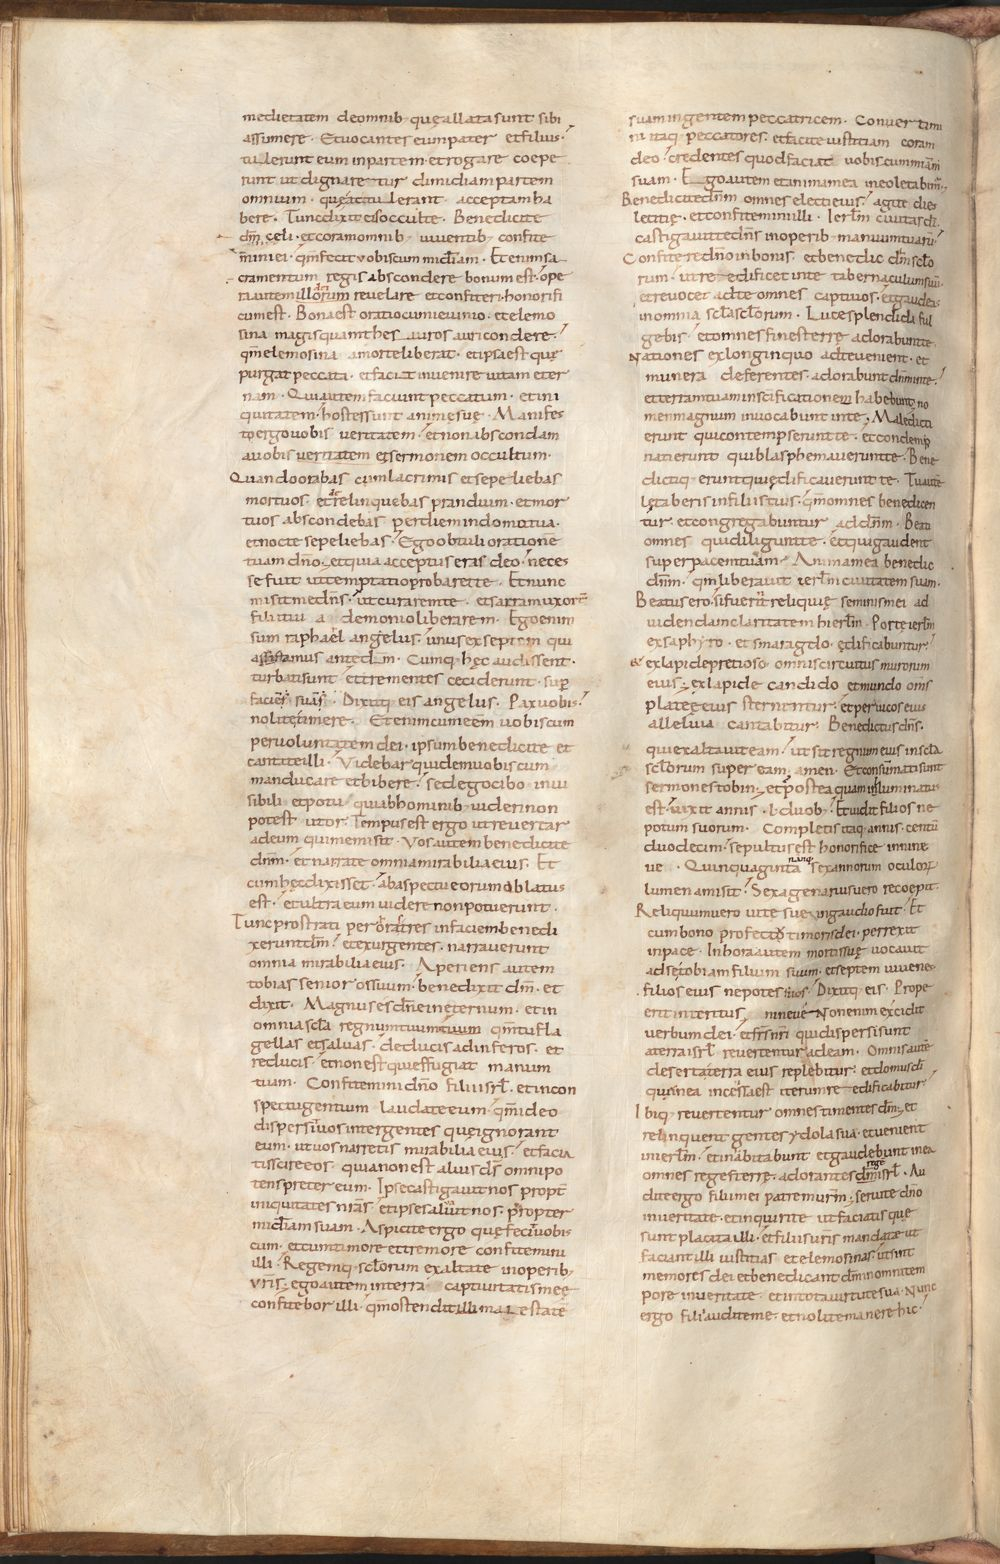 medietatem deomnib· quę allata sunt sibi
assumere· Etuocantes eum pater et filius·
tullerunt eum in partem· et rogare coepe
runt ut dignaretur dimidiam partem
omnium· quę attulerant acceptam ha
bere· Tunc dixit eis occulte· Benedicite
dm̄ celi· et coram omnib· uiuentib· confite
mini ei· qm̄ fecit uobiscum mic̄diam· Etenim sa
cramentum regis abscondere bonum est· ope
ra autem illorum reuelare et confiteri· honorifi
cum est· Bona est oratio cum ieiunio· et elemo
sina magis quam thesauros auri condere·
qm̄ elemosina a morte liberat· et ipsa est quę
purgat peccata· et facit inuenire uitam eter
nam· Qui autem faciunt peccatum· et ini
quitatem· hostes sunt animę suę· Manifes
to ergo uobis ueritatem· et non abscondam
a uobis ueritatem et sermonem occultum·
Quando orabas cum lacrimis et sepeliebas
mortuos· et relinquebas prandium· et mor
tuos abscondebas per diem in domo tua·
et nocte sepeliebas· Ego obtuli oratione
tuam dn̄o· et quia acceptus eras deo· neces
se fuit ut temptatio probaret te· Et nunc
misit me dn̄s· ut curarem te· et sarram uxorē
filii tui a demonio liberarem· Ego enim
sum raphael angelus· unus ex septem qui
assistamus ante dn̄m· Cumq· hęc audissent·
turbati sunt et trementes ceciderunt· sup
faciem suam· Dixitq· eis angelus· Pax uobis·
nolite timere· Etenim cum eēm uobiscum
per uoluntatem dei· ipsum benedicite et
cantate illi· Videbar quidem uobiscum
manducare et bibere· sed ego cibo inui
sibili et potu· qui ab hominib· uideri non
potest utor· Tempus est ergo ut reuertar
ad eum qui me misit· Vos autem benedicite
dm̄· et narrate omnia mirabilia eius· Et
cum hęc dixisset· ab aspectu eorum oblatus
est· et ultra eum uidere non potuerunt·
Tunc prostrati per horas tres in faciem benedi
xerunt dm̄· et exurgentes· narrauerunt
omnia mirabilia eius· Aperiens autem
tobias senior os suum· benedixit dm̄· et
dixit· Magnus es dn̄e in eternum· et in
omnia scl̄a regnum tuum qm̄ tu fla
gellas et saluas· deducis ad inferos· et
reducis· et non est qui effugiat manum
tuam· Confitemini dn̄o filii isrl̄· et in con
spectu gentium laudate eum· qm̄ ideo
dispersit uos inter gentes quę ignorant
eum· ut uos narretis mirabilia eius· et facia
tis scire eos· quia non est alius ds̄ omnipo
tens preter eum· Ipse castigauit nos propt̄
iniquitates nr̄as· et ipse saluabit nos· propter
mic̄diam suam· Aspicite ergo quę fecit uobis
cum· et cum timore et tremore confitemini
illi· Regemq· sclorum exaltate in operib·
vris· ego autem in terra captiuitatis meę
confitebor illi· qm̄ ostendit illi maiestatē
suam in gentem peccatricem· Conuertimi
ni itaq· peccatores· et facite iustitiam coram
deo· credentes quod faciat uobiscum mīam
suam· Ego autem et anima mea in eo letabim̄·
Benedicite dn̄m omnes electi eius· agite dies
letitię· et confitemini illi· Ierl̄m ciuitas dī
castigauit te dn̄s in operib· manuum tuarū·
Confitere dn̄o in bonis· et benedic dm̄ sclo
rum· ut reedificet in te tabernaculum suū·
et reuocet ad te omnes captiuos· et gaudeas
in omnia scl̄a sclorum· Luce splendida ful
gebis· et omnes fines terrę adorabunt te·
Nationes ex longinquo ad te uenient· et
munera deferentes· adorabunt dn̄m in te·
et terram tuam in scīficationem habebunt· no
men magnum inuocabunt in te· Maledicti
erunt qui contempserunt te· et condemp
nati erunt qui blasphemauerunt te· Bene
dictiq· erunt qui ędificauerunt te· Tu autē
lętaberis in filiis tuis· qm̄ omnes benedicen
tur· et congregabuntur ad dn̄m· Beati
omnes qui diligunt te· et qui gaudent
super pacem tuam· Anima mea benedic
dn̄m· qm̄ liberauit ierl̄m ciuitatem suam·
Beatus ero· si fuerīt reliquię seminis mei ad
uidendam claritatem hierl̄m· Portę ierl̄m
ex saphyro· et smaragdo· ędificabuntur·
& ex lapide pretioso· omnis circuitus murorum
eius· ex lapide candido et mundo om̄s
plateę eius sternentur· et per uicos eius
alleluia cantabitur· Benedictus dn̄s·
qui exaltauit eam· ut sit regnum eius in scl̄a
sclorum super eam· amen· Et consumati sunt
sermones tobin· et postea quam illuminatus
est· uixit annis ·l· duob· Et uidit filios ne
potum suorum· Completis itaq· annis· centū
duodecim· sepultus est honorifice in nine
ue· Quinquaginta nanq· sex annorum oculorꝝ
lumen amisit· Sexagenarius uero recoepit·
Reliquum uero uite sue in gaudio fuit· Et
cum bono profectu timoris dei· perrexit
in pace· In hora autem mortis suę uocauit
ad se tobiam filium suum· et septem iuuenes
filios eius nepotes suos· Dixitq· eis· Prope
erit interitus nineue· Non enim excidit
uerbum dei· et frs̄ nri qui dispersi sunt
a terra isrl̄ reuertentur ad eam· Omnis autē
deserta terra eius replebitur· et domus dī
quę in ea incēsa est iterum reedificabitur
Ibiq· reuertentur omnes timentes dm̄· et
relinquent gentes ydola sua· et uenient
in ierl̄m· et inhabitabunt et gaudebunt in ea
omnes reges terrę· adorantes regē isrl̄· Au
dite ergo filii mei patrem urm̄· seruite dn̄o
in ueritate· et inquirite ut faciatis quę
sunt placita illi· et filiis ur̄is mandate ut
faciant illi iustitias et elemosinas· ut sint
memores dei et benedicant dn̄m in omni tem
pore in ueritate· et in tota uirtute sua· Nunc
ergo filii audite me· et nolite manere hic·